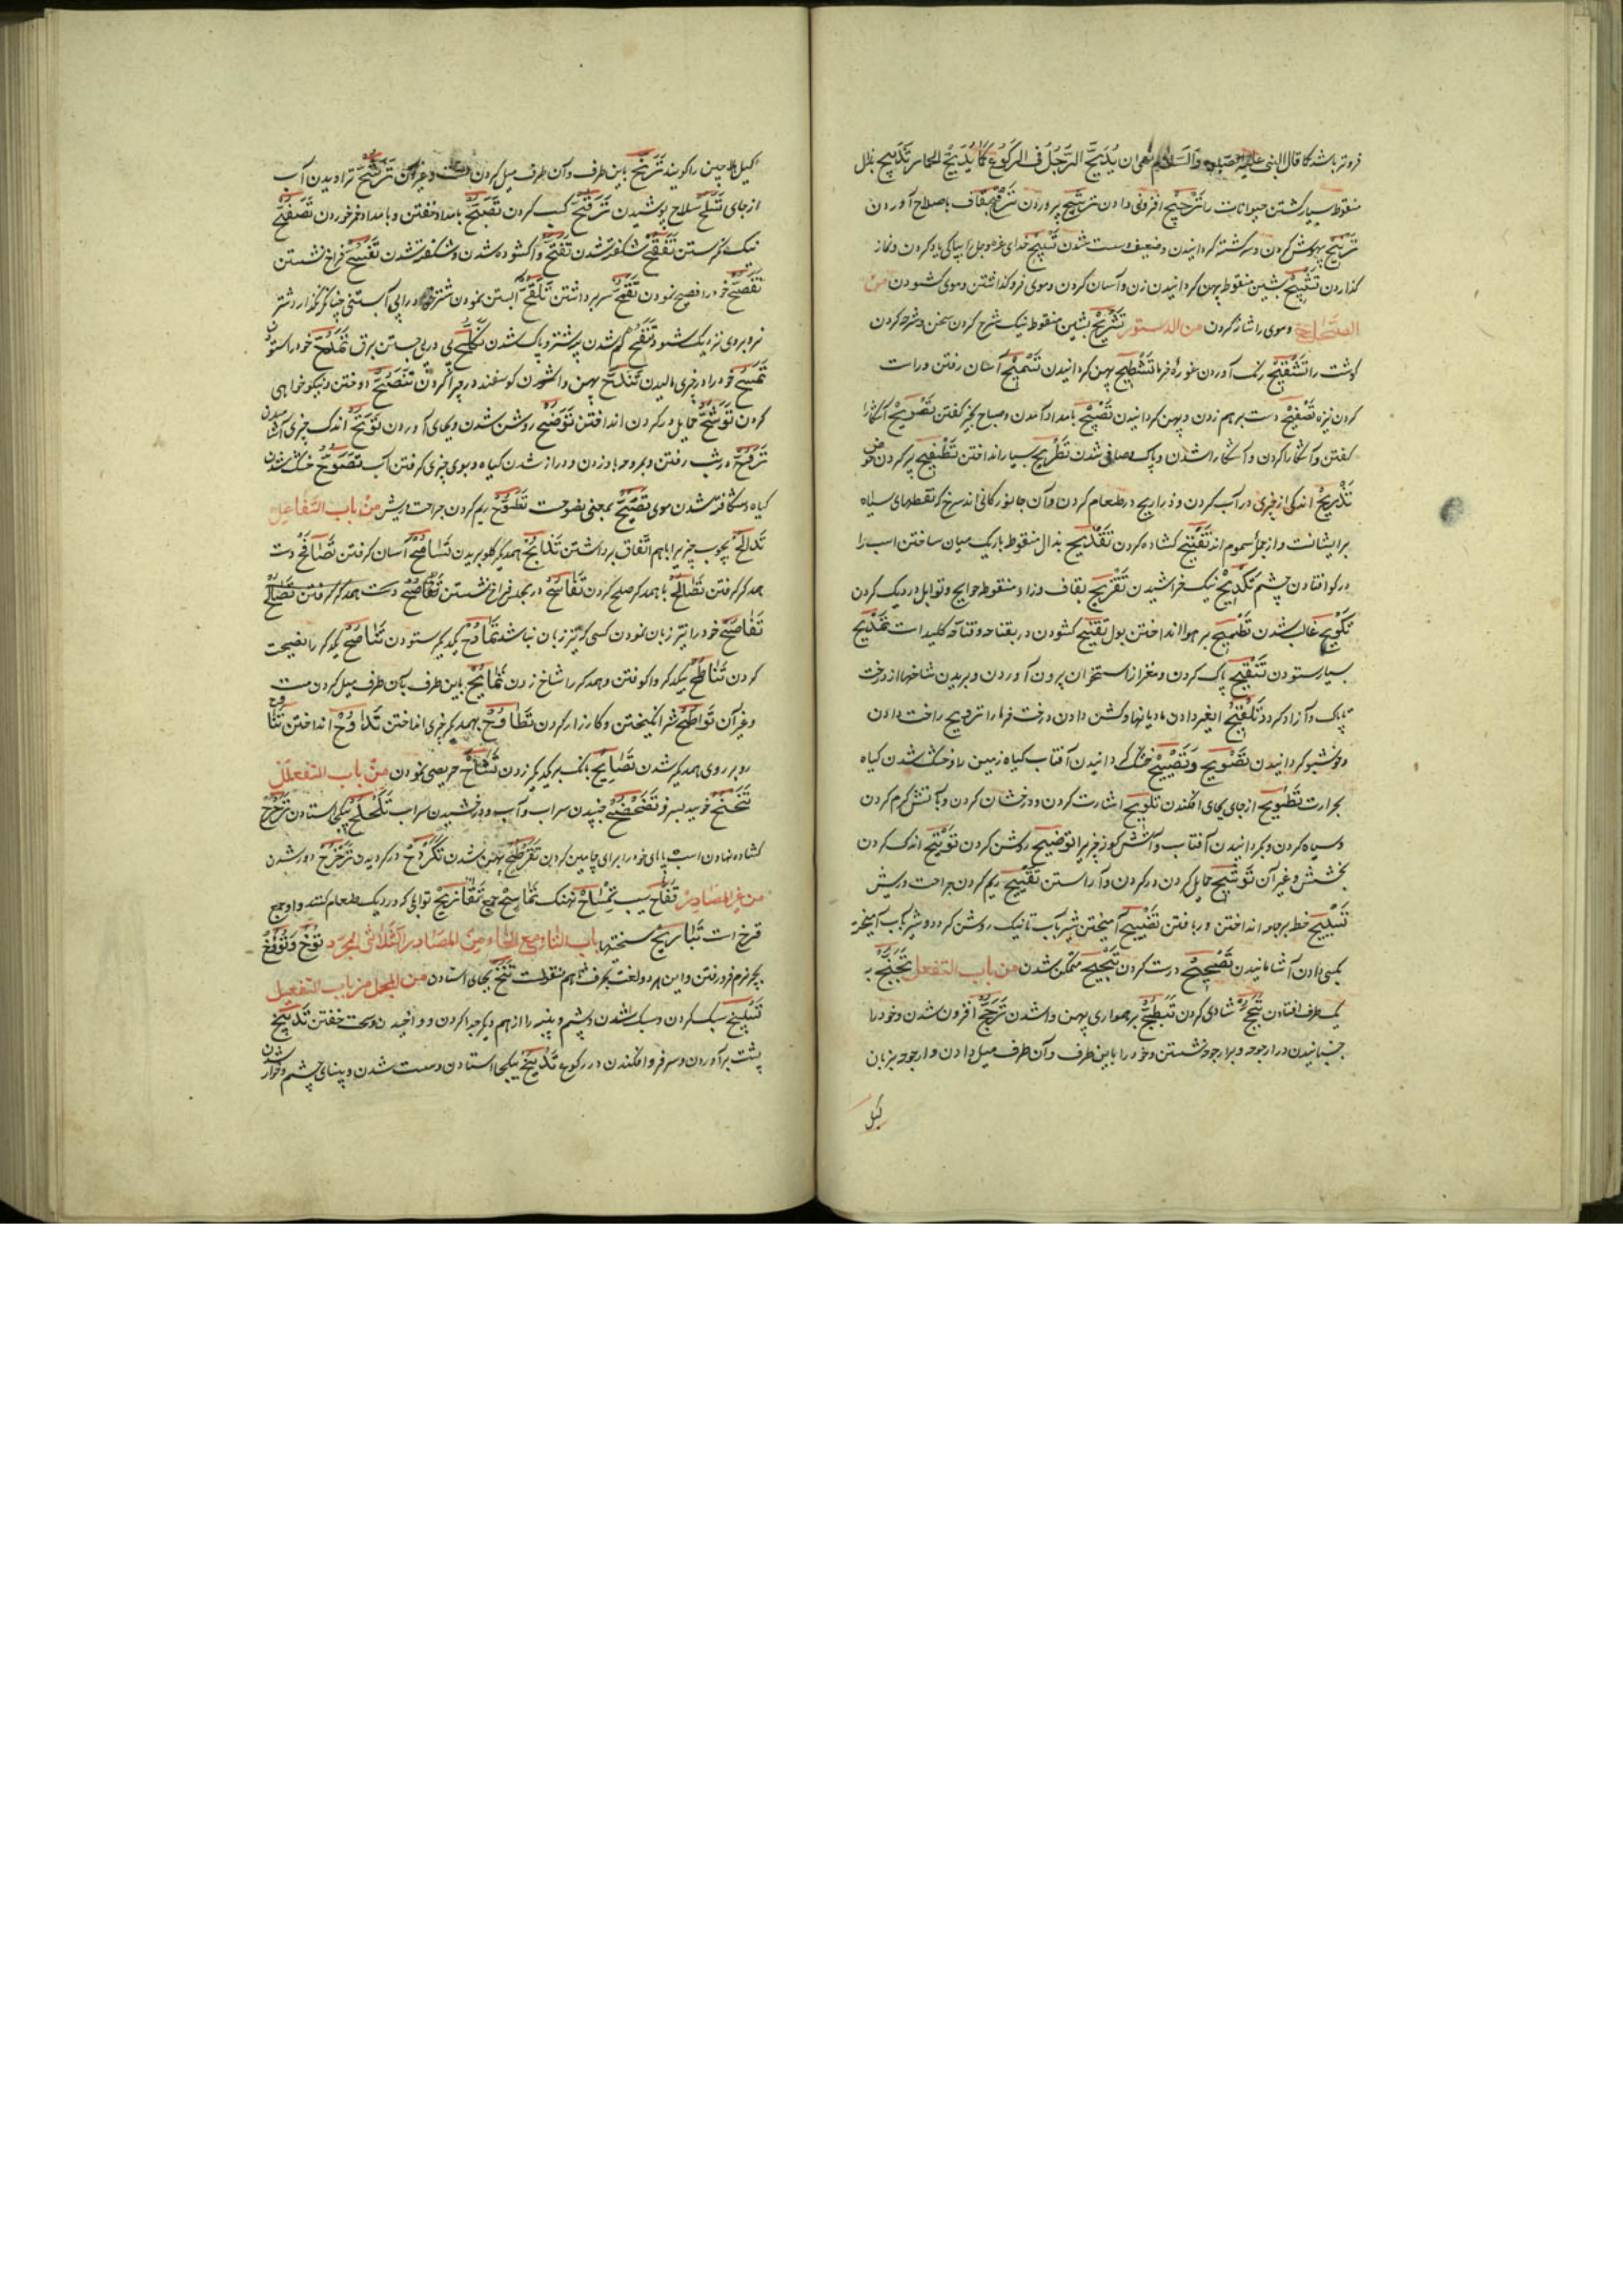 فروتر باشد کما قال النبی علیه الصلوة والسلام نهی ان یُدَبِّحَ الرَّجُلُ فی الرکوع کَمَا یُدَبِّحُ الحمار تَذْبِیح بذال
منقوط بسیار کشتن حیوانات را تَرْجِیح افزونی دادن تَرْشِیح پروردن تَرْقِیح بقاف باصلاح آوردن
تَرْنِیح بیهوش کردن و سرگشته گردانیدن و ضعیف و سست شدن تَسْبِیح خدای عزوجل را بپاکی یاد کردن و نماز
گذاردن بشین منقوط پهن گردانیدن زن و آسان کردن و موی فرو گذاشتن و موی گشودن من
الصحاح و موی را شانه کردن من الدستور تَشْرِیح بشین منقوط نیک شرح کردن سخن و شرحه کردن
گوشت را تَشْقِیح رنگ آوردن غورهٔ خرما تَسْطِیح پهن گردانیدن آسان رفتن و راست
کردن نیزه تَصْفِیح دست بر هم زدن و پهن گردانیدن تَصْبِیح بامداد آمدن و صباح بخیر گفتن تَصْرِیح آشکارا
گفتن و آشکارا کردن و آشکارا شدن و پاک و صافی شدن تَطْرِیح بسیار انداختن تَطْفِیح پر کردن حوض
تَذْرِیح اندکی از چیزی در آب کردن و ذراریح در طعام کردن و آن جانورکانی اند سرخ که نقطهای سیاه
بر ایشانست و از جملهٔ سموم اند تَفْتِیح گشاده کردن تَقْدِیح بدال منقوط باریک میان ساختن اسب را
در گو افتادن چشم تَکْدِیح نیک خراشیدن تَقْزِیح بقاف و زاء منقوط حوایج و توابل در دیک کردن
غالب شدن تَطْمِیح بر هوا انداختن بول تَفْتِیح گشودن در بقناحه و قناحه کلید است تَمْدِیح
بسیار ستودن تَنْقِیح پاک کردن و مغز از استخوان بیرون آوردن و بریدن شاخها از درخت
تا پاک و آزاد گردد تَلْقِیح ایغر دادن مادیانها و گشن دادن درخت خرما را تَرْوِیح راحت دادن
و خوشبو گردانیدن تَصْوِیح وَتَصْیِیح خشک گردانیدن آفتاب گیاه زمین را و خشک شدن گیاه
بحرارت تَطْوِیح از جای بجای افکندن تَلْوِیح اشارت کردن و درخشان کردن و بآتش گرم کردن
و سیاه کردن و بگردانیدن آفتاب و آتش گونه چیز را تَوْضِیح روشن کردن تَوْتِیح اندک کردن
بخشش و غیر آن تَوْشِیح حمایل کردن در گردن و آراستن تَقْیِیح ریم کردن جراحت و ریش
تَسْیِیح خط بر جامه انداختن و ربافتن تَضْیِیح آمیختن شیر بآب تا نیک روشن گردد و شیر بآب آمیخته
بکسی دادن آشامانیدن تَصْحِیح درست کردن تَبْحِیح متمکن شدن من باب التفعل تَجَنُّح به
یک طرف افتادن تَبَجُّح شادی کردن تَبَطُّح بر همواری پهن واشدن تَرَجُّح افزون شدن و خود را
جنبانیدن در ارجوحه و بر ارجوحه نشستن و خود را باین طرف و آن طرف میل دادن و ارجوحه بزبان
گیل
گیل ماچین را گویند تَرَنُّح باین طرف و آن طرف میل کردن مست و غیر آن تَرَشُّح تراویدن آب
از جای تَسَلُّح سلاح پوشیدن تَرَقُّح کسب کردن تَصَبُّح بامداد خفتن و بامداد فرخوردن تَصَفُّح
نیک نگرستن تَفَقُّح شکفته شدن تَفَتُّح واگشوده شدن و شکفته شدن تَفَسُّح فراخ نشستن
تَفَصُّح خود را فصیح نمودن تَقَمُّح سر برداشتن تَلَقُّح آبستن نمودن شتر خود را بی آبستنی چنانکه نگذارد شتر
نر و بروی نزدیک شود تَنَقُّح کم شدن پیه شتر و پاک شدن پی در پی جستن برق تَمَدُّح خود را ستودن
تَمَسُّح خود را در چیزی مالیدن تَنَدُّح پهن واشدن گوسفند در چراگردن تَنَصُّح دوختن و نیکوخواهی
کردن تَوَشُّح حمایل در گردن انداختن تَوَضُّح روشن شدن و بجای آوردن تَوَتُّح اندک چیزی آشامیدن
تَرَوُّح در شب رفتن و بمروحه باد زدن و دراز شدن گیاه و بوی چیزی گرفتن آب تَصَوُّح خشک شدن
گیاه و شکافته شدن موی تَصَیُّح بمعنی تصوح است تَقَیُّح ریم کردن جراحت و ریش من باب التفاعل
تَدَالُح بچوب چیزی را باهم اتفاق برداشتن تَذَابُح همدیگر گلو بریدن تَسَامُح آسان گرفتن تَصَافُح دست
همدگر گرفتن تَصَالُح باهمدگر صلح کردن تَفَاسُح در مجلس فراخ نشستن
تَفَاصُح خود را تیز زبان نمودن کسی که تیز زبان نباشد تَمَادُح یکدیگر ستودن تَنَاصُح یکدگر را نصیحت
کردن تَنَاطُح یکدگر واکوفتن و همدگر را شاخ زدن تَمَایُح باین طرف بآن طرف میل کردن مست
و غیر آن تَوَاطُح شر انگیختن و کارزار کردن تَطَاوُح بهمدیگر چیزی انداختن انداختن تَنَاوُح
روبروی همدیگر شدن تَصَایُح بانگ بر یکدیگر زدن تَشَاحّ حریصی نمودن من باب التفعلل
جنبیدن سراب و آب و درخشیدن سراب بیکجا استادن
گشاده نهادن اسب پایهای خود را برای پهن شدن در گردیدن تَزَحْزُح دور شدن
من غیر المصادر تُفَّاح سیب تِمْسَاح نهنک تَمَاسِیح جمع تَقَازِیح توابلی که در دیک طعام کنند و او جمع
قزح است تَبَارِیح سختیها باب التاء مع الخاء من المصادر الثلاثی المجرد تَوْخ و ثَوْخ
بچیز نرم فرو رفتن و این هر دو لغت بحرف ثا هم منقولست تَنْخ بجای استادن من باب التفعیل
تَسْبِیخ سبک کردن و سبک شدن و پشم و پنبه را از هم دیگر جدا کردن و واخیدن و سخت خفتن تَدْبِیخ
پشت بر آوردن و سر فرو افکندن در رکوع بیکجا استادن و سست شدن و بینای چشم و خوار شدن